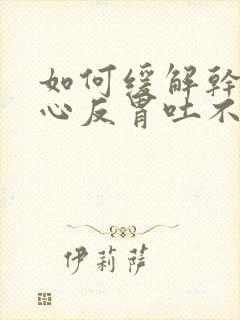 如何缓解幹
心反胃吐不
伊莉萨